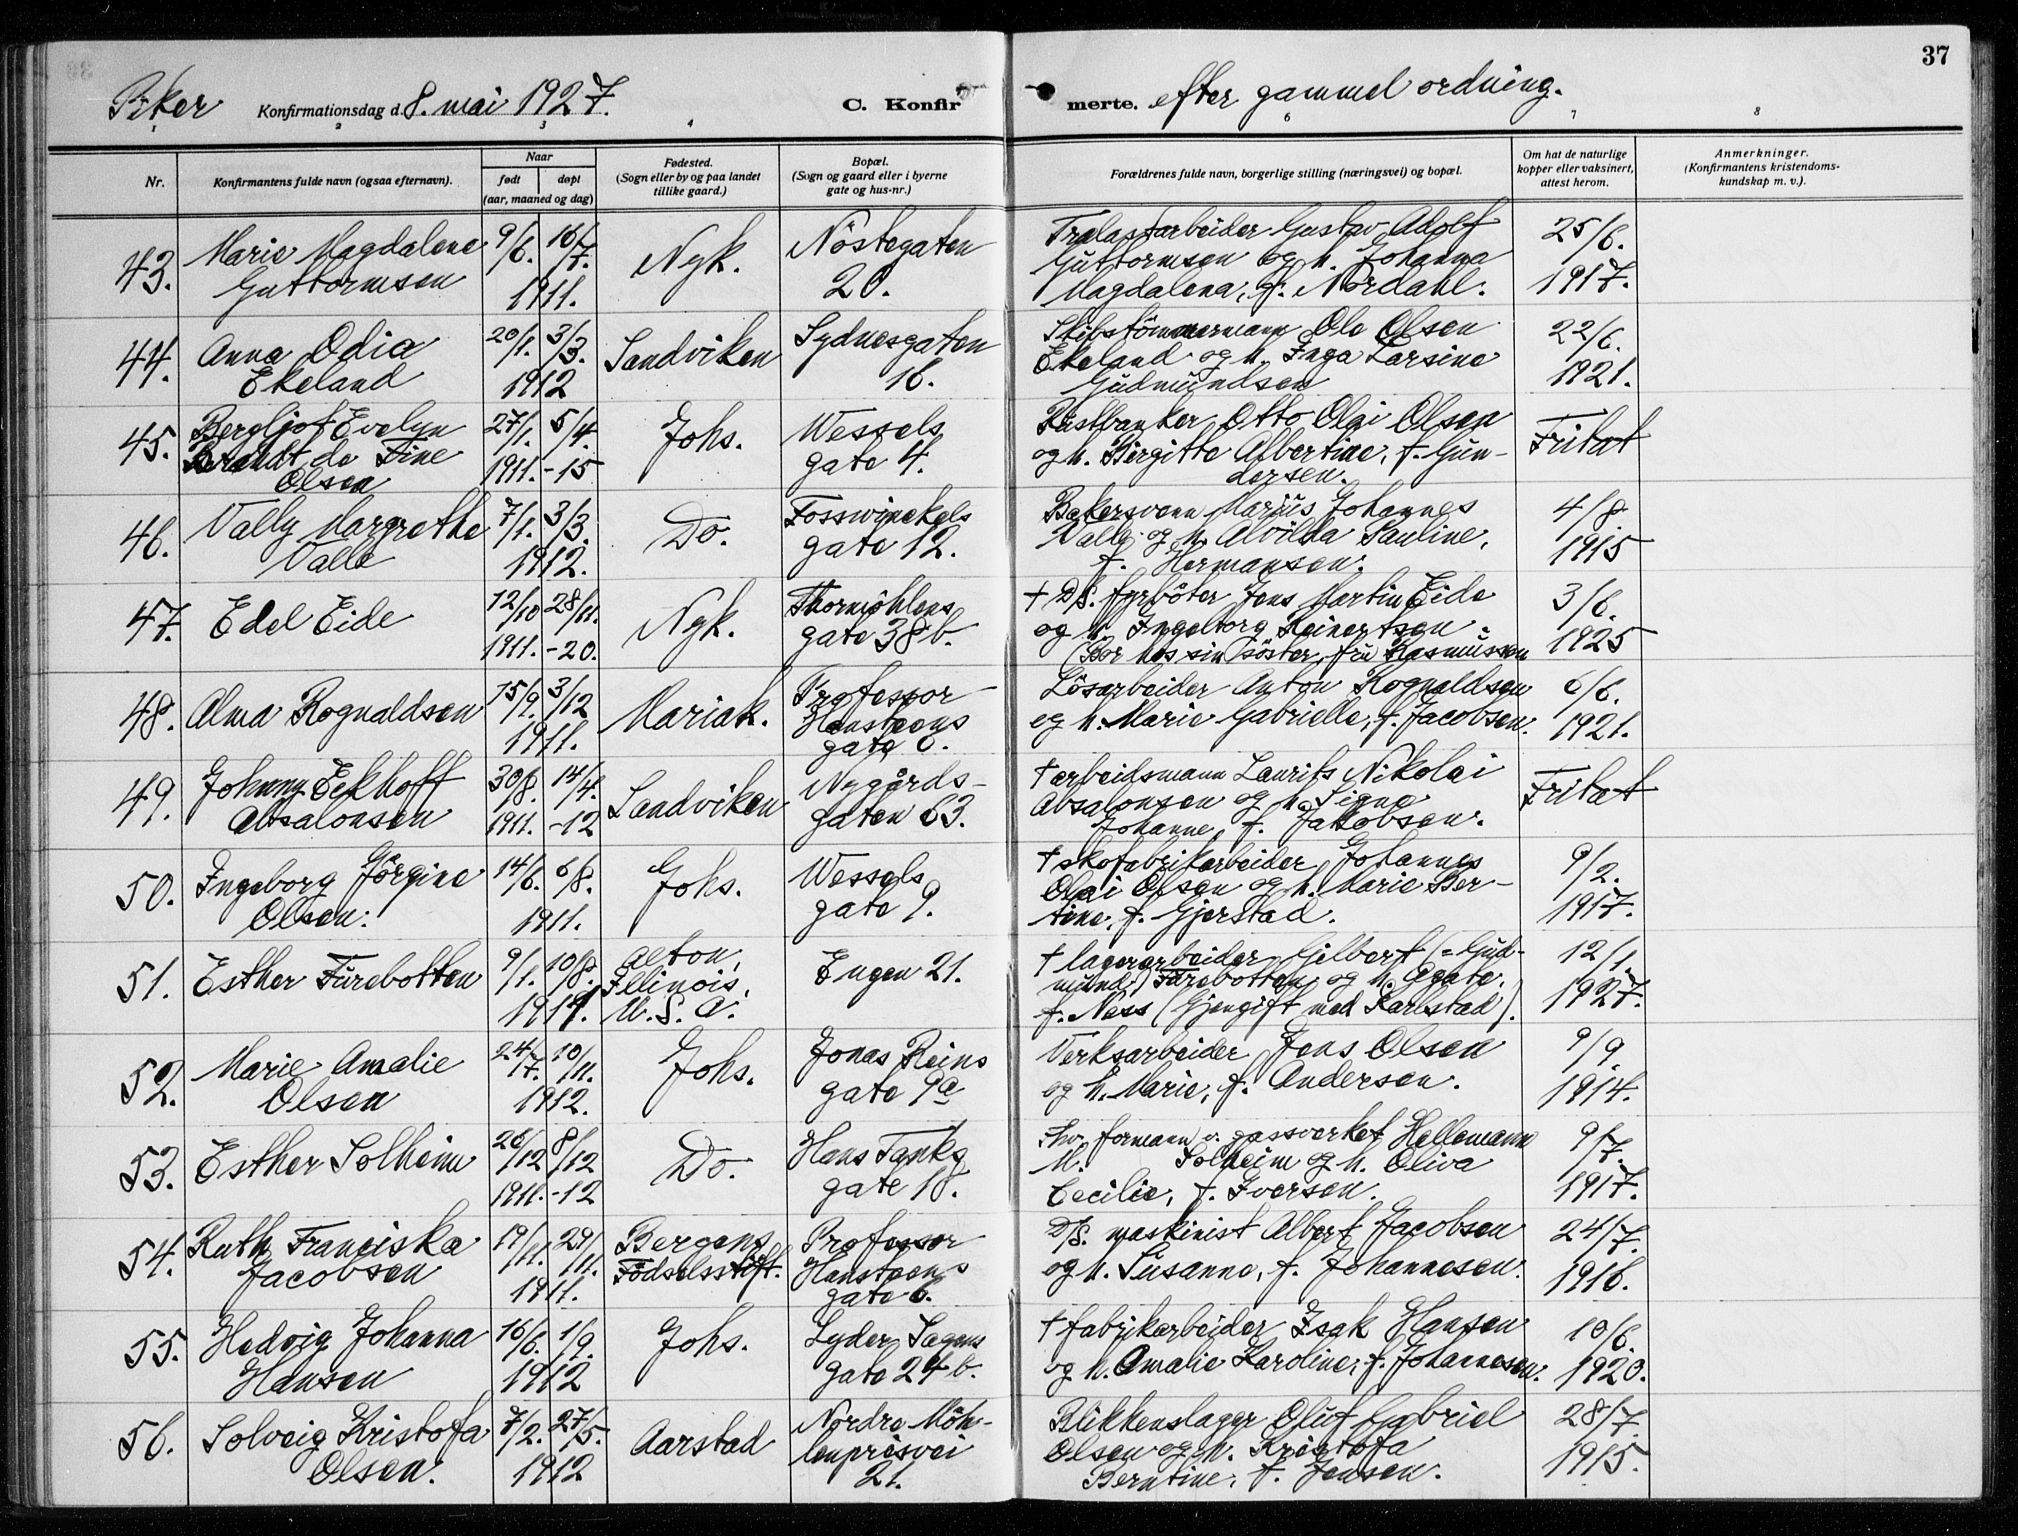 37
Piker Konfirmationsdag d. 8. mai 1927. C. Konfir
merte. efter gammel ordning.
1 2 3 4 6 7 8
Nr.
Konfirmantens fulde navn (ogsaa efternavn).
Naar
født døpt
(aar, maaned og dag)
Fødested.
(Sogn eller by og paa landet
tillike gaard.)
Bopæl.
(Sogn og gaard eller i byerne
gate og hus-nr.)
Forældrenes fulde navn, borgerlige stilling (næringsvei) og bopæl.
Om hat de naturlige
kopper eller vaksinert,
attest herom.
Anmerkninger.
(Konfirmantens kristendoms-
kundskap m. v.).
43.
Marie Magdalene
Guttormsen
9/6. 16/7.
1911.
Nyk.
Nöstegaten
20.
Trelastarbeider Gustav Adolf
Guttormsen og h. Johanna
Magdalena, f. Nordahl.
25/6.
1917.
44.
Anna Odia
Ekeland
20/1. 3/3.
1912
Sandviken
Sydnesgaten
16.
Skibstömmermann Ole Olsen
Ekeland og h. Inga Larsine
Gudmundsen
22/6.
1921.
45.
Bergljot Evelyn
Brandt de Fine
Olsen
27/1. 5/4.
1911. -15
Johs.
Wessels
gate 4.
Rustbanker Otto Olai Olsen
og h. Birgitte Albertine, f. Gun-
dersen.
Fritat
46.
Vally Margrethe
Valle
7/1. 3/3.
1912.
Do.
Fosswinckels
gate 12.
Bakersvenn Marius Johannes
Valle og h. Alvilda Pauline,
f. Hermansen.
4/8.
1915
47.
Edel Eide
12/10 28/11.
1911. -20.
Nyk.
Thormöhlens
gate 38 b.
† D/S. fyrböter Jens Martin Eide
og h. Ingeborg Reinertsen.
(Bor hos sin söster, fru Rasmussen
3/6.
1925
48.
Alma Rognaldsen
15/9. 3/12
1911.
Mariak.
Professor
Hansteens
gate 6.
Lösarbeider Anton Rognaldsen
og h. Marie Gabrielle, f. Jacobsen.
6/6.
1921.
49.
Johnny Eckhoff
Absalonsen
30/8. 14/4.
1911. -12
Sandviken
Nygårds-
gaten 63.
† arbeidsmann Laurits Nikolai
Absalonsen og h. Signe
Johanne, f. Jakobsen.
Fritat
50.
Ingeborg Jörgine
Olsen.
14/6. 6/8.
1911.
Johs.
Wessels
gate 9.
† skofabrikarbeider Johannes
Olai Olsen og h. Marie Ber-
tine, f. Gjerstad.
9/2.
1917.
51.
Esther Furebotten
9/1. 10/8.
1914.
Alton,
Illinois,
U. S. A.
Engen 21.
† lagerarbeider Gilbert (= Gud-
mund) Furebotten og h. Agate.
f. Ness (Gjengift med Karlstad).
12/1.
1927.
52.
Marie Amalie
Olsen
24/7. 10/11.
1912.
Johs.
Jonas Reins
gate 9a
Verksarbeider Jens Olsen
og h. Marie, f. Andersen.
9/9.
1914.
53.
Esther Solheim
26/12 8/12
1911. -12
Do.
Hans Tanks
gate 18.
formann v. gassverket Hellemann
M. Solheim og h. Oliva
Cecilie, f. Iversen.
9/7.
1917.
54.
Ruth Franciska
Jacobsen
19/11. 29/11.
1911.
Bergens
Födselsstift.
Professor
Hansteens
gate 6.
D/S. maskinist Albert Jacobsen
og h. Susanne, f. Johannesen.
24/7.
1916.
55.
Hedvig Johanna
Hansen
16/6. 1/9.
1912
Johs.
Lyder Sagens
gate 24 b.
† fabrikarbeider Isak Hansen
og h. Amalie Karoline, f. Johannesen.
10/6.
1920.
56.
Solveig Kristofa
Olsen.
7/2. 27/5.
1912
Aarstad
Nordre Möh-
lenprisvei
21.
Blikkenslager Oluf Gabriel
Olsen og h. Kristofa
Berntine, f. Jensen.
28/7.
1915.